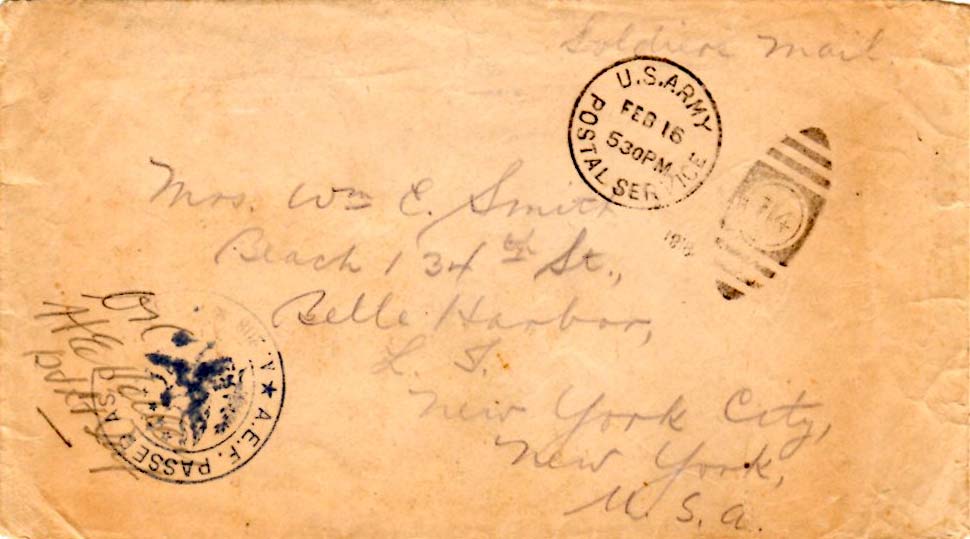 Soldiers Mail
U.S. ARMY
POSTAL SERVICE
FEB 16
530PM
Mrs. Wm E. Smith
Beach 134th St.,
Belle Harbor,
L. I.
New York City,
New York,
U. S. A.
A.E.F. PASSED AS